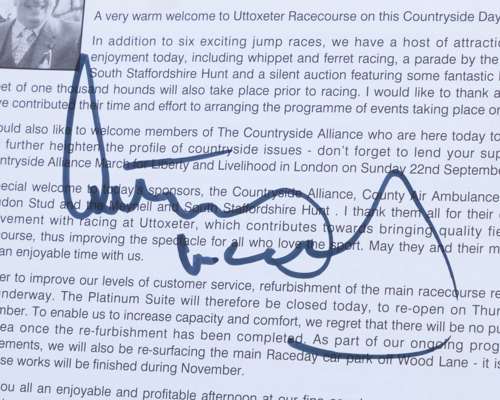 A very warm welcome to Uttoxeter Racecourse on this Countryside Day
In addition to six exciting jump races, we have a host of
enjoyment today, including whippet and ferret racing, a parade by the
South Staffordshire Hunt and a silent auction featuring some fantastic
of one thousand hounds will also take place prior to racing. I would like to thank
contributed their time and effort to arranging the programme of events taking place
also like to welcome members of The Countryside Alliance who are here today to
further heighten the profile of countryside issues - don't forget to lend your
Alliance March for Liberty and Livelihood in London on Sunday 22nd
welcome to today's sponsors, the Countryside Alliance, County Air Ambulance
Stud and the Meynell and South Staffordshire Hunt . I thank them all for their
with racing at Uttoxeter, which contributes towards bringing quality
thus improving the spectacle for all who love the sport. May they and their
an enjoyable time with us.
to improve our levels of customer service, refurbishment of the main racecourse
underway. The Platinum Suite will therefore be closed today, to re-open on
To enable us to increase capacity and comfort, we regret that there will be no
once the re-furbishment has been completed. As part of our ongoing
we will also be re-surfacing the main Raceday car park off Wood Lane - it is
works will be finished during November.
you all an enjoyable and profitable afternoon at our